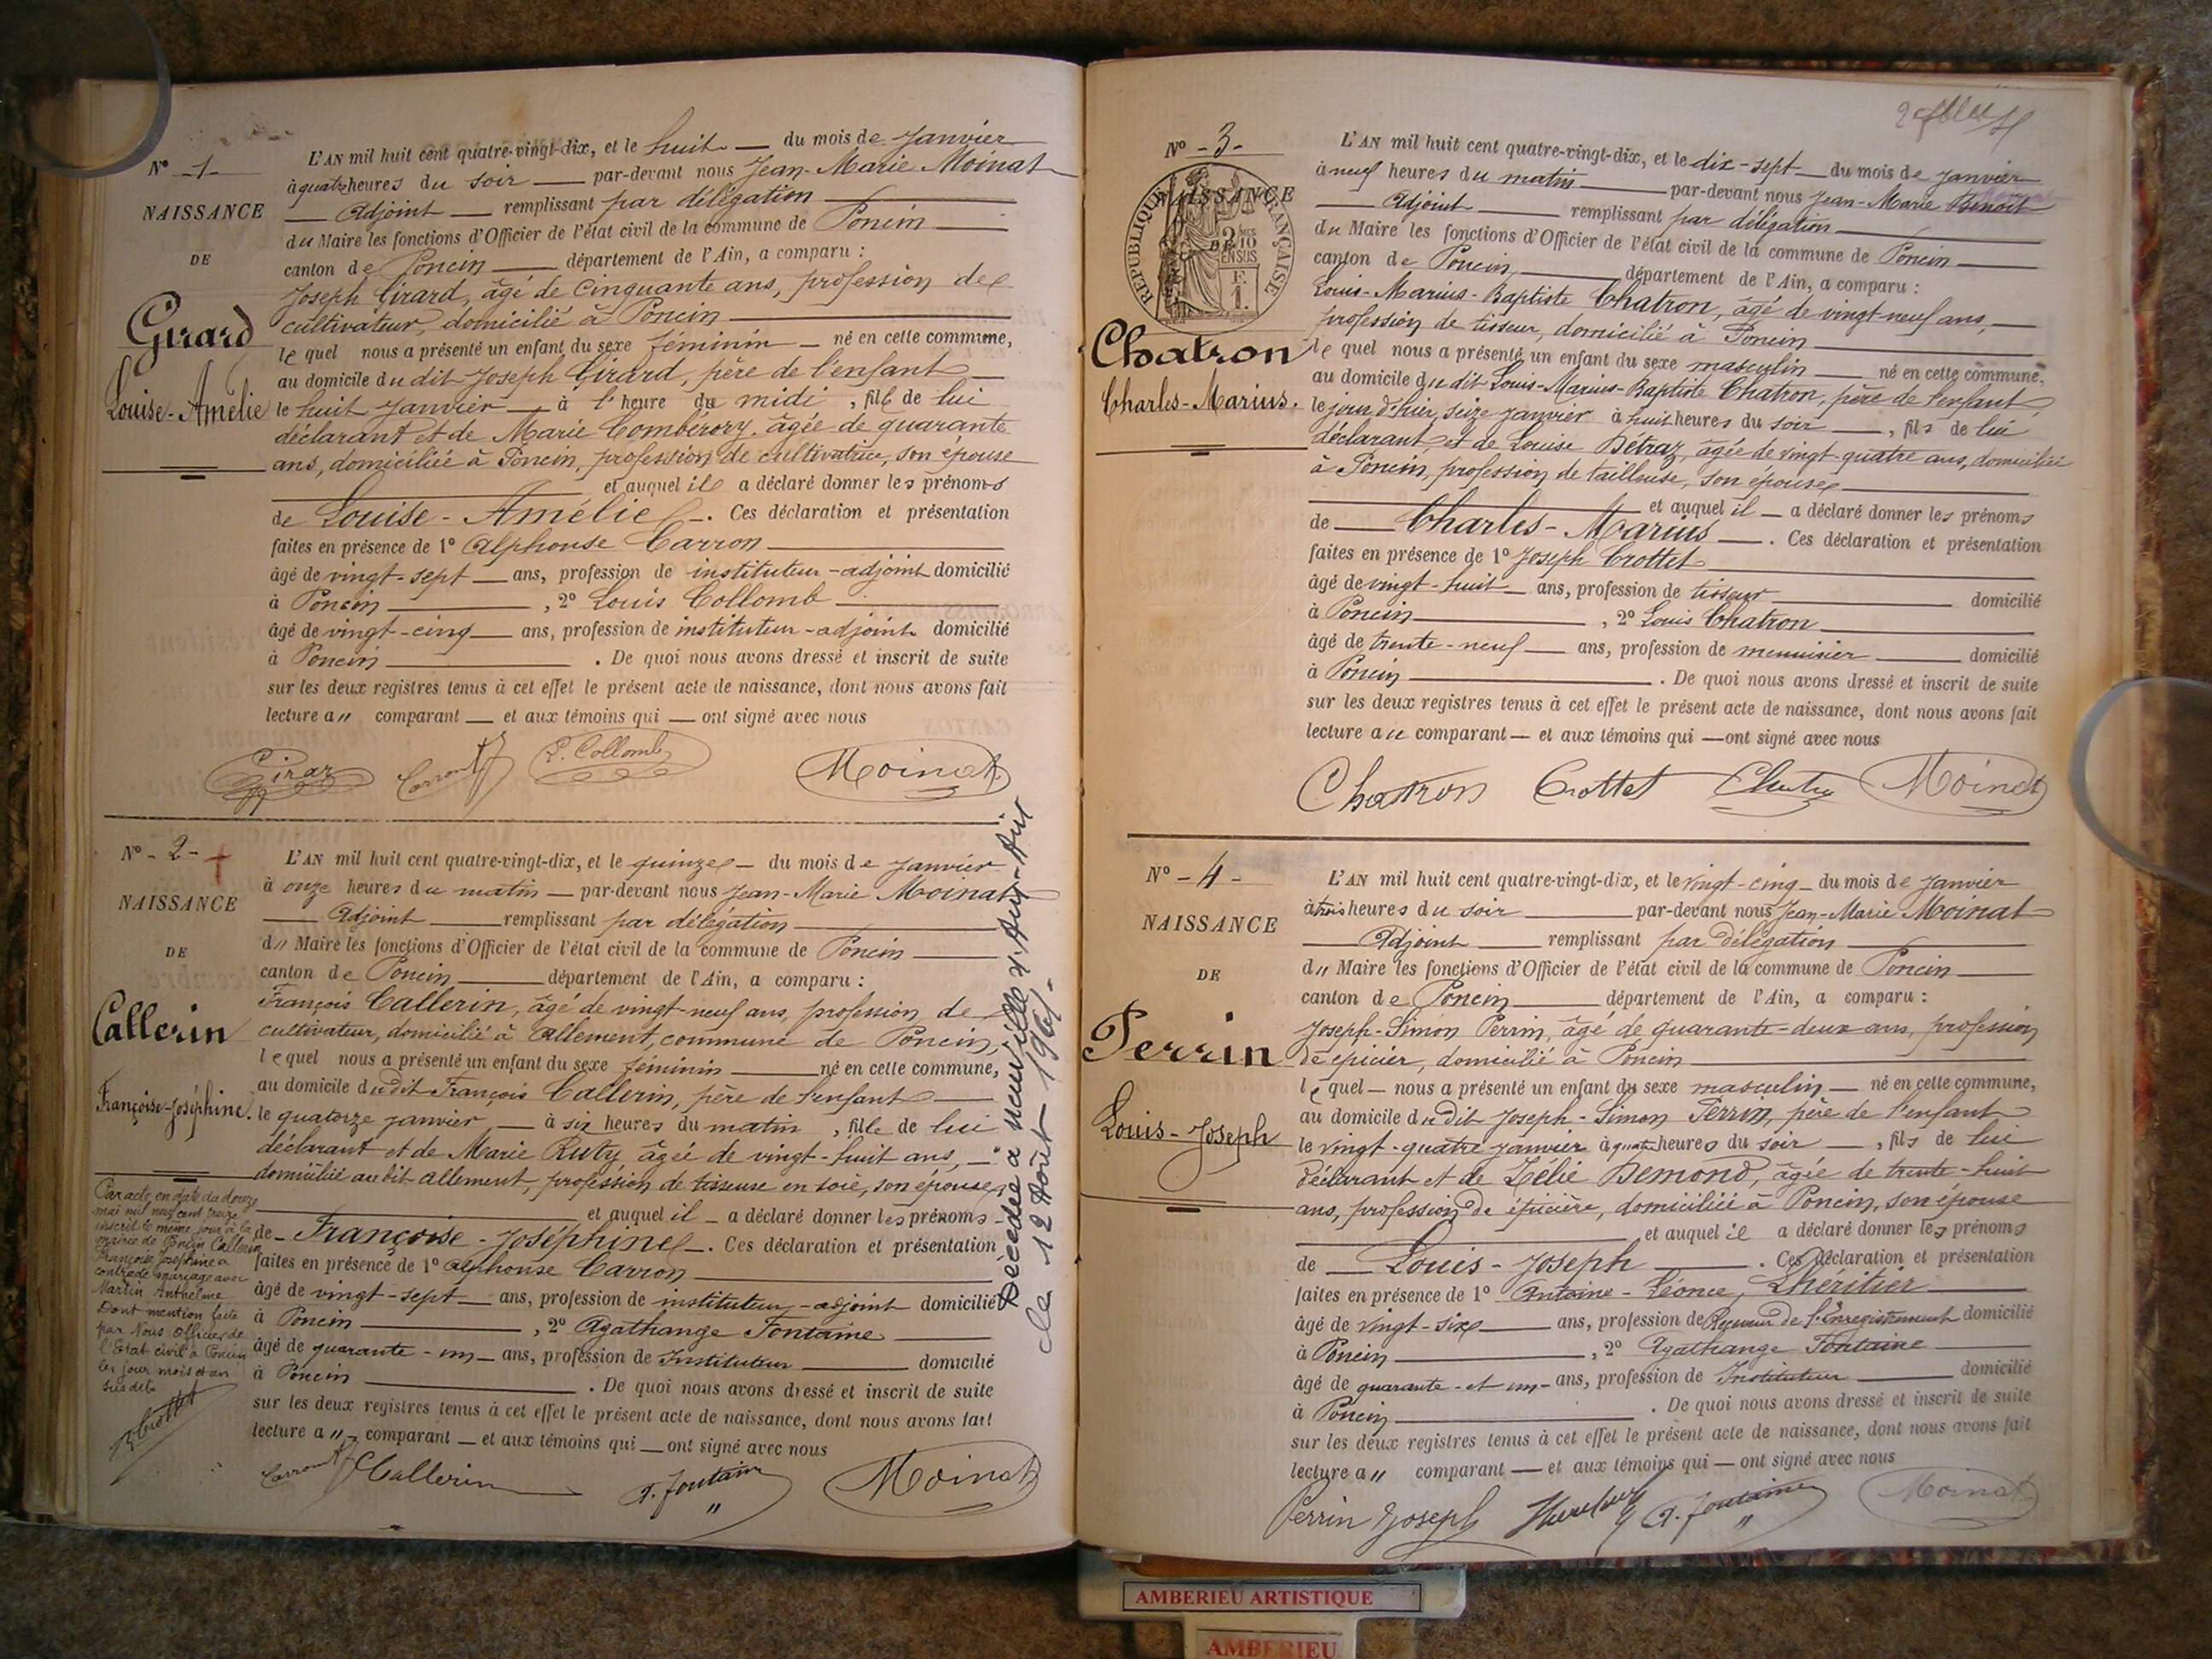 N° -1-
NAISSANCE
DE
Girard
Louise-Amélie
L'AN mil huit cent quatre-vingt-dix, et le huit du mois de Janvier
à quatre heures du soir par-devant nous Jean-Marie Moinat
Adjoint remplissant par délégation
du Maire les fonctions d'Officier de l'état civil de la commune de Poncin
canton de Poncin département de l'Ain, a comparu :
Joseph Girard, âgé de Cinquante ans, profession de
cultivateur, domicilié à Poncin
le quel nous a présenté un enfant du sexe féminin né en cette commune,
au domicile du dit Joseph Girard, père de l'enfant
le huit Janvier à l'heure de midi, fille de lui
déclarant et de Marie Combérory, âgée de quarante
ans, domiciliée à Poncin, profession de cultivatrice, son épouse
et auquel il a déclaré donner les prénoms
de Louise-Amélie. Ces déclaration et présentation
faites en présence de 1° Alphonse Carron
âgé de vingt-sept ans, profession de instituteur-adjoint domicilié
à Poncin, 2° Louis Collomb
âgé de vingt-cinq ans, profession de instituteur-adjoint domicilié
à Poncin. De quoi nous avons dressé et inscrit de suite
sur les deux registres tenus à cet effet le présent acte de naissance, dont nous avons fait
lecture au comparant et aux témoins qui ont signé avec nous
Girard Carron L. Collomb Moinat
N° -2- +
NAISSANCE
DE
Callerin
Françoise-Joséphine.
Par acte en date du douze
mai mil neuf cent treize
inscrit le même jour à la
mairie de Poncin Callerin
Françoise Joséphine a
contracté mariage avec
Martin Anthelme
Dont mention faite
par Nous Officier de
l'Etat civil à Poncin
les jour mois et an
susdits
L'AN mil huit cent quatre-vingt-dix, et le quinze du mois de Janvier
à onze heures du matin par-devant nous Jean-Marie Moinat
Adjoint remplissant par délégation
du Maire les fonctions d'Officier de l'état civil de la commune de Poncin
canton de Poncin département de l'Ain, a comparu :
François Callerin, âgé de vingt-neuf ans, profession de
cultivateur, domicilié à Allement, commune de Poncin,
le quel nous a présenté un enfant du sexe féminin né en cette commune,
au domicile du dit François Callerin, père de l'enfant
le quatorze janvier, à six heures du matin, fille de lui
déclarant et de Marie Ruty âgée de vingt-huit ans,
domiciliée au dit Allement, profession de tisseuse en soie, son épouse,
et auquel il a déclaré donner les prénoms
de Françoise-Joséphine. Ces déclaration et présentation
faites en présence de 1° Alphonse Carron
âgé de vingt-sept ans, profession de instituteur-adjoint domicilié
à Poncin, 2° Agathange Fontaine
âgé de quarante-un ans, profession de Instituteur domicilié
à Poncin. De quoi nous avons dressé et inscrit de suite
sur les deux registres tenus à cet effet le présent acte de naissance, dont nous avons fait
lecture au comparant et aux témoins qui ont signé avec nous
Carron Callerin A. Fontaine Moinat
Décédée à Neuville s. Ain - Ain
le 12 Août 1961.
N° -3-
NAISSANCE
RÉPUBLIQUE FRANÇAISE
2 10
EN SUS
F.
1.
DE
Chatron
Charles-Marius.
L'AN mil huit cent quatre-vingt-dix, et le dix-sept du mois de Janvier
à neuf heures du matin par-devant nous Jean-Marie Benoît
Adjoint remplissant par délégation
du Maire les fonctions d'Officier de l'état civil de la commune de Poncin
canton de Poncin, département de l'Ain, a comparu :
Louis-Marius-Baptiste Chatron, âgé de vingt-neuf ans,
profession de tisseur, domicilié à Poncin
le quel nous a présenté un enfant du sexe masculin né en cette commune,
au domicile du dit Louis-Marius-Baptiste Chatron, père de l'enfant,
le jour d'hier, seize janvier à huit heures du soir, fils de lui
déclarant, et de Louise Bétraz, âgée de vingt-quatre ans, domiciliée
à Poncin, profession de tailleuse, son épouse
et auquel il a déclaré donner les prénoms
de Charles-Marius. Ces déclaration et présentation
faites en présence de 1° Joseph Crottet
âgé de vingt-huit ans, profession de tisseur domicilié
à Poncin, 2° Louis Chatron
âgé de trente-neuf ans, profession de menuisier domicilié
à Poncin. De quoi nous avons dressé et inscrit de suite
sur les deux registres tenus à cet effet le présent acte de naissance, dont nous avons fait
lecture au comparant et aux témoins qui ont signé avec nous
Chatron Crottet Moinat
N° -4-
NAISSANCE
DE
Perrin
Louis-Joseph
L'AN mil huit cent quatre-vingt-dix, et le vingt-cinq du mois de Janvier
à trois heures du soir par-devant nous Jean-Marie Moinat
Adjoint remplissant par délégation
du Maire les fonctions d'Officier de l'état civil de la commune de Poncin
canton de Poncin département de l'Ain, a comparu :
Joseph-Simon Perrin, âgé de quarante-deux ans, profession
de épicier, domicilié à Poncin
le quel nous a présenté un enfant du sexe masculin né en cette commune,
au domicile du dit Joseph-Simon Perrin, père de l'enfant
le vingt-quatre janvier à quatre heures du soir, fils de lui
déclarant et de Zélie Demond, âgée de trente-huit
ans, profession de épicière, domiciliée à Poncin, son épouse
et auquel il a déclaré donner les prénoms
de Louis-Joseph. Ces déclaration et présentation
faites en présence de 1° Antoine-Léonce, Lhéritier
âgé de vingt-six ans, profession de Receveur de l'Enregistrement domicilié
à Poncin, 2° Agathange Fontaine
âgé de quarante-et un ans, profession de Instituteur domicilié
à Poncin. De quoi nous avons dressé et inscrit de suite
sur les deux registres tenus à cet effet le présent acte de naissance, dont nous avons fait
lecture au comparant et aux témoins qui ont signé avec nous
Perrin Joseph A. Fontaine Moinat
AMBERIEU ARTISTIQUE
AMBERIEU